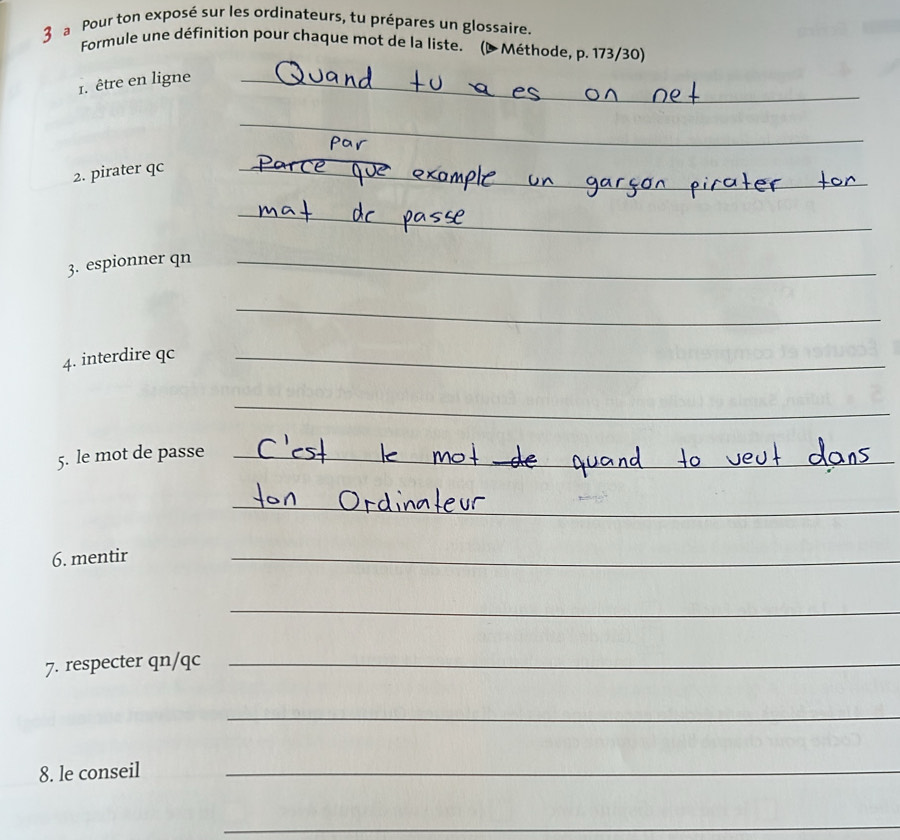 3 a Pour ton exposé sur les ordinateurs, tu prépares un glossaire.
Formule une définition pour chaque mot de la liste. (▶ Méthode, p. 173/30)
1. être en ligne Quand tu a es on net
par
2. pirater qc Parce que example un garçon pirater ton
mat de passe
3. espionner qn
4. interdire qc
5. le mot de passe C'est le mot de quand to veut dans
ton Ordinateur
6. mentir
7. respecter qn/qc
8. le conseil